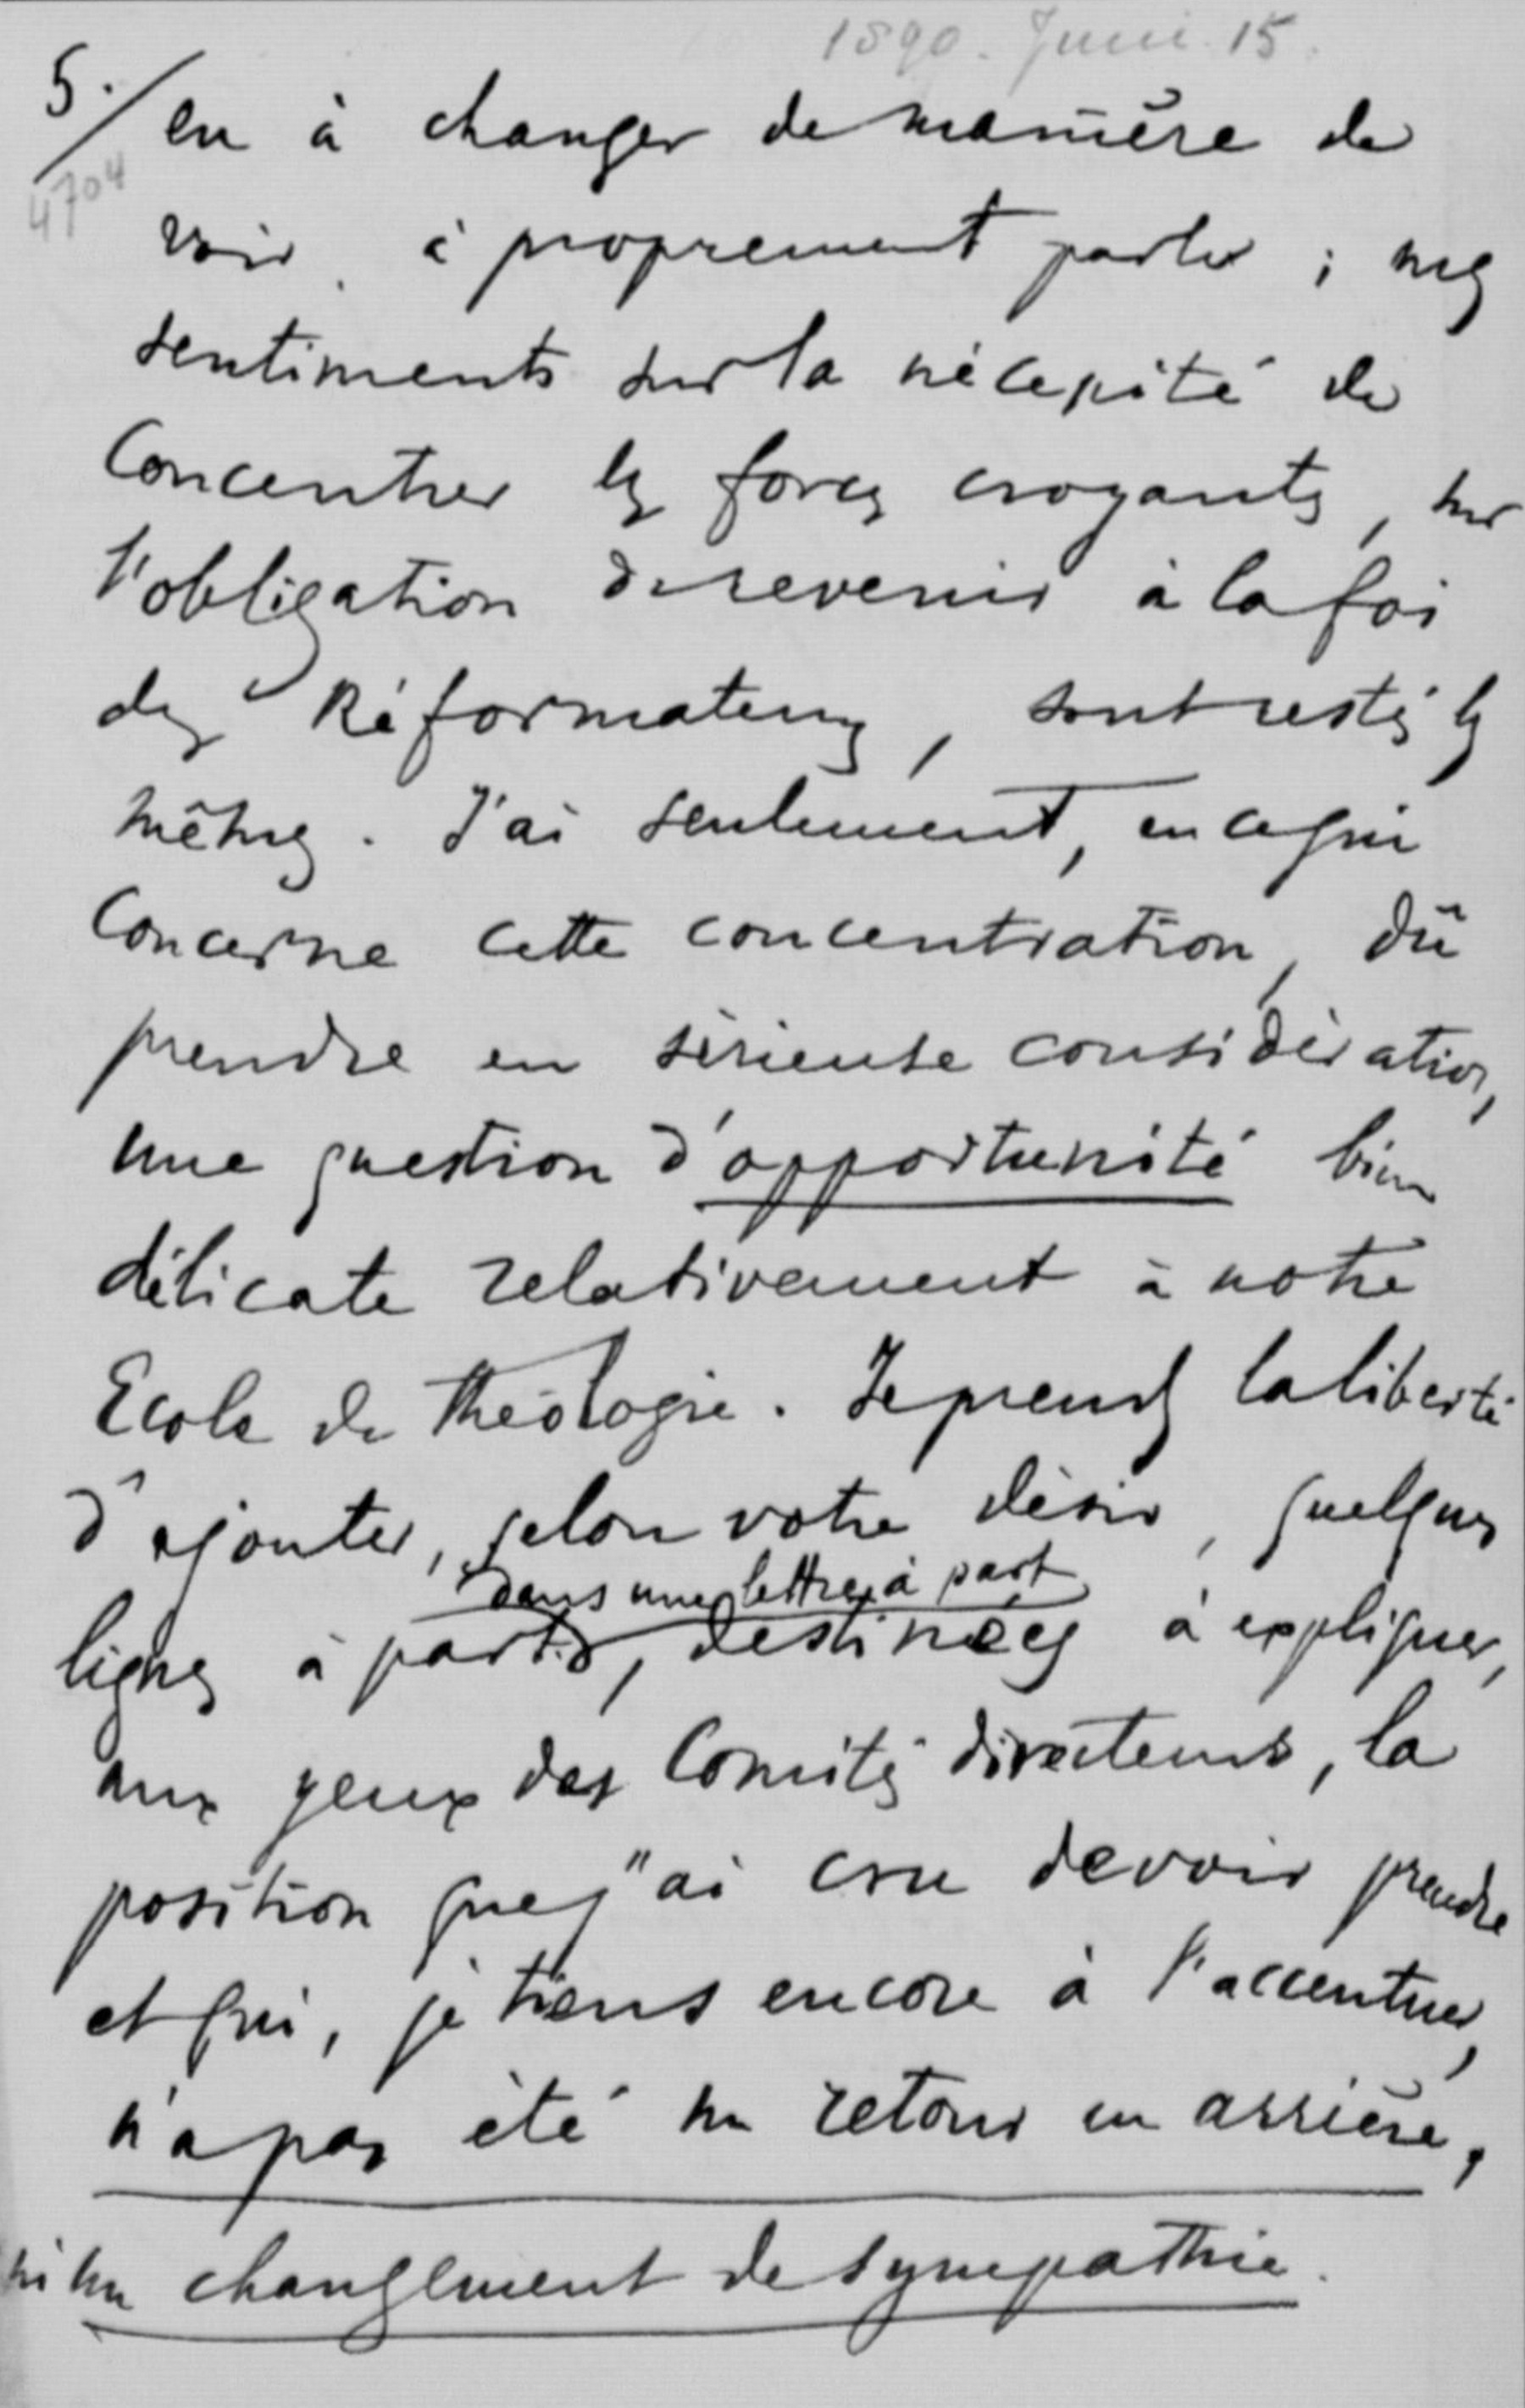 1890. Juni. 15.
5./ eu à changer de manière de
4704
voir, à proprement parler ; mes
sentiments sur la nécessité de
concentrer les forces croyantes, sur
l'obligation de revenir à la foi
des Réformateurs, sont restés les
mêmes. J'ai seulement, en ce qui
concerne cette concentration, dû
prendre en sérieuse considération,
une question d'opportunité bien
délicate relativement à notre
Ecole de Théologie. Je prends la liberté
d'ajouter, selon votre désir, quelques
dans une lettre à part
lignes à part, destinées à expliquer,
aux yeux des Comités directeurs, la
position que j'ai cru devoir prendre
et qui, je tiens encore à l'accentuer,
n'a pas été un retour en arrière,
ni un changement de sympathie.